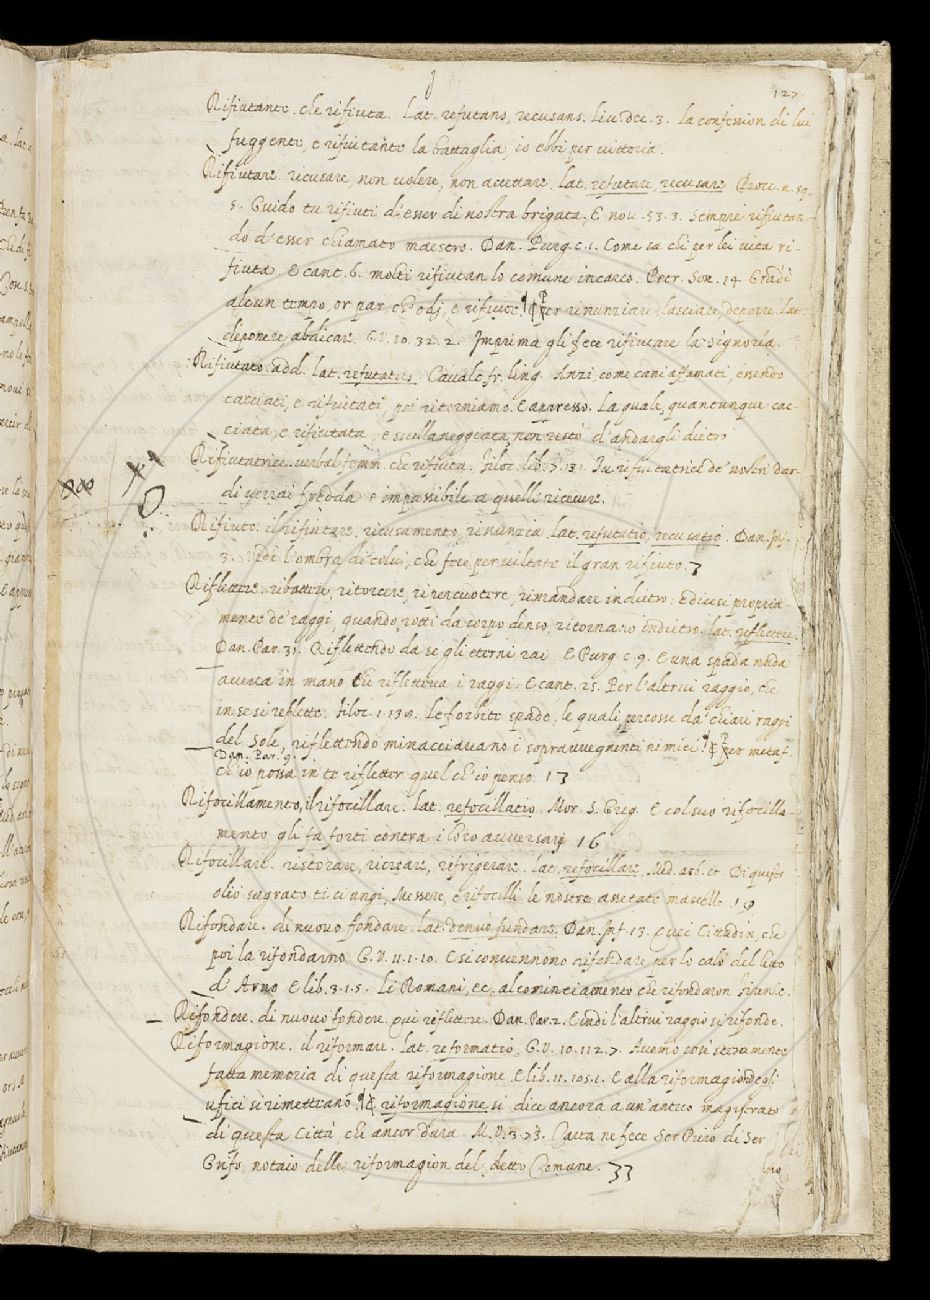 127.
Rifiutante. che rifiuta. Lat. refutans, recusans. Liu. Dec. 3. la confession di lui
fuggente, e rifiutante la battaglia, io ebbi per uittoria.
Rifiutare. ricusare, non uolere, non accettare. Lat. refutare, recusare. Bocc. n. 59.
5. Guido tu rifiuti d'esser di nostra brigata, E nou. 53. 3. Sempre rifiutan-
do d'esser chiamato maestro. Dan. Purg. c. 1. Come sa chi per lei uita ri-
fiuta. E cant. 6. molti rifiutan lo comune incarco. Petr. Son. 14
alcun tempo, or par, ch'odj, e rifiute. ¶ Per rinunziare lasciare, deporre. Lat.
deponere abdicare. G. V. 10. 32. 2. Imprima gli fece rifiutare la Signoria.
Rifiutato. add. lat. refutatus. Caualc. fr. ling. Anzi, come cani affamati, essendo
cacciati, e rifiutati, poi ritorniamo. E appresso. La quale, quantunque cac-
ciata, e rifiutata, e suillaneggiata, non restò d'andargli dietro
Rifiutatrice. uerbal femm. che rifiuta. Filoc. lib. 5. Tu rifiutatrice de' nostri dar-
di uerrai fredda e impassibile a quelli riceuere.
Rifiuto. il rifiutare, ricusamento, rinunzia lat. refutatio, recusatio. Dan. Inf.
3. Vidi l'ombra di colui, che fece per uiltate il gran rifiuto. 7
Riflettere. ribattere, ritorcere, ripercuotere, rimandare indietro. E dicesi propria-
mente de' raggi, quando, rotti da corpo denso, ritornano indietro. lat. reflectere.
Dan. Par. 31. Riflettendo da se gli eterni rai E Purg. c. 9. E una spada nuda
aueua in mano, che rifletteua i raggi. E cant. 25. Per l'altrui raggio, che
in se si reflette. Filoc. 1. 130. Le forbite spade, le quali percosse da' chiari raggi
del Sole, riflettendo minacciauano i soprauuegnenti nimici. ¶ Per metaf.
Dan. Par. 9.
ch'io possa in te rifletter quel ch'io penso. 13
Rifocillamento, il rifocillare. lat. refocillatio. Mor. S. Greg. E col suo rifocilla-
mento gli fa forti contra i loro auuersarj 16
Rifocillare. ristorare, ricreare, refrigerare. lat. refocillare. Med. arb. cr. Di questo
olio sagrato ti ci ungi, Messere, e rifocilli le nostre assetate mascelle. 19
Rifondare. di nuouo fondare. lat. denuò fundare. Dan. Inf. 13. Quei Cittadin, che
poi la rifondarno. G. V. 11. 1. 10. E si conuennono rifondare per lo calo del letto
d'Arno. E lib. 3. 1. 5. Li Romani, ec. al cominciamento che rifondaron Firenze.
Rifondere. di nuouo fondere. qui riflettere. Dan. Par. 2. E indi l'altrui raggio si rifonde.
Riformagione. il riformare. Lat. reformatio, G. V. 10. 112. 7. Auemo così stesamente
fatta memoria di questa riformagione. E lib. 11. 105. 1. E alla riformagion degli
ufici si rimetterano. ¶ E riformagione si dice ancora a un'antico magistrato
di questa Città, che ancor dura. M. V. 3. 73. Carta ne fece Ser Piero di Ser
Grifo, notaio delle riformagion del detto Comune. 33